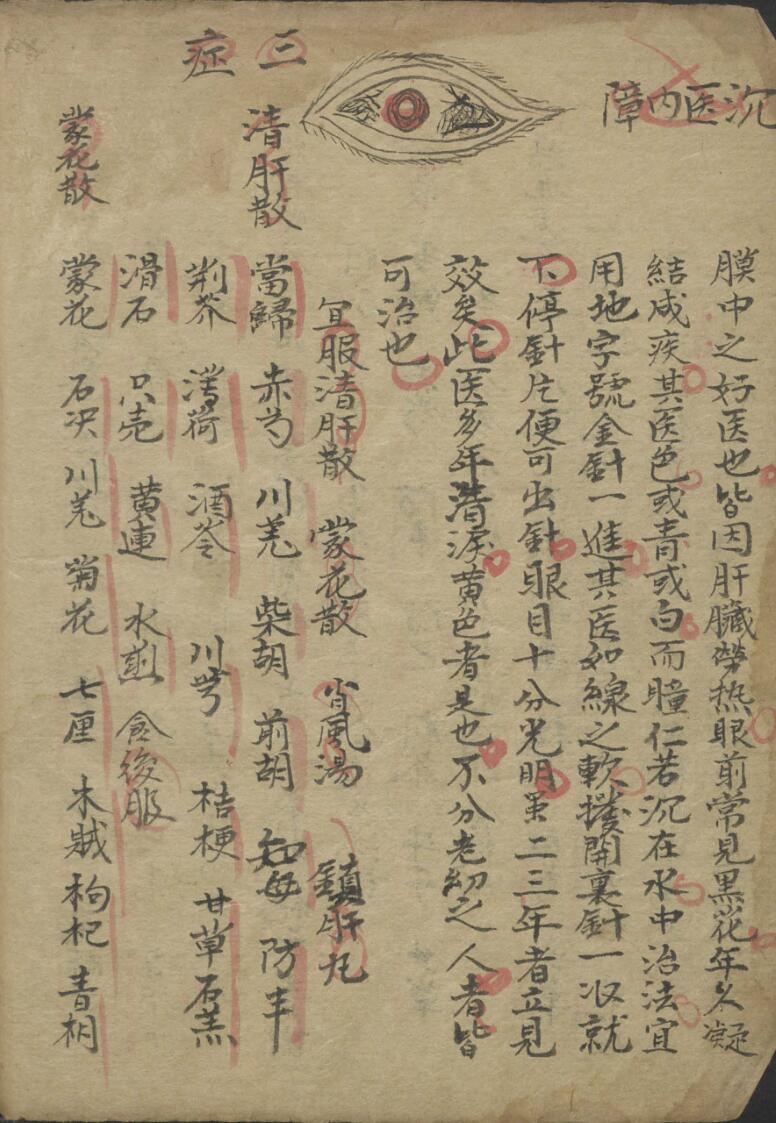 沉医内障
三症
膜中之好医也皆因肝臟勞热眼前常見黑花年久凝
結成疾其医色或青或白而瞳仁若沉在水中治法宜
用地字號金針一進其医如線之軟撥開裏針一次就
下停針片便可出針眼目十分光明至二三年者立見
效矣此医多年潜淚黄色者是也不分老幼之人者皆
可治也
宜服清肝散 蒙花散 省風湯 鎮肝丸
清肝散
當歸 赤芍 川羌 柴胡 前胡 知母 防丰
荆芥 薄荷 酒苓 川芎 桔梗 甘草 石羔
滑石 只壳 黄連 水煎 食後服
蒙花散
蒙花 石决 川羌 菊花 七厘 木贼 枸杞 青相